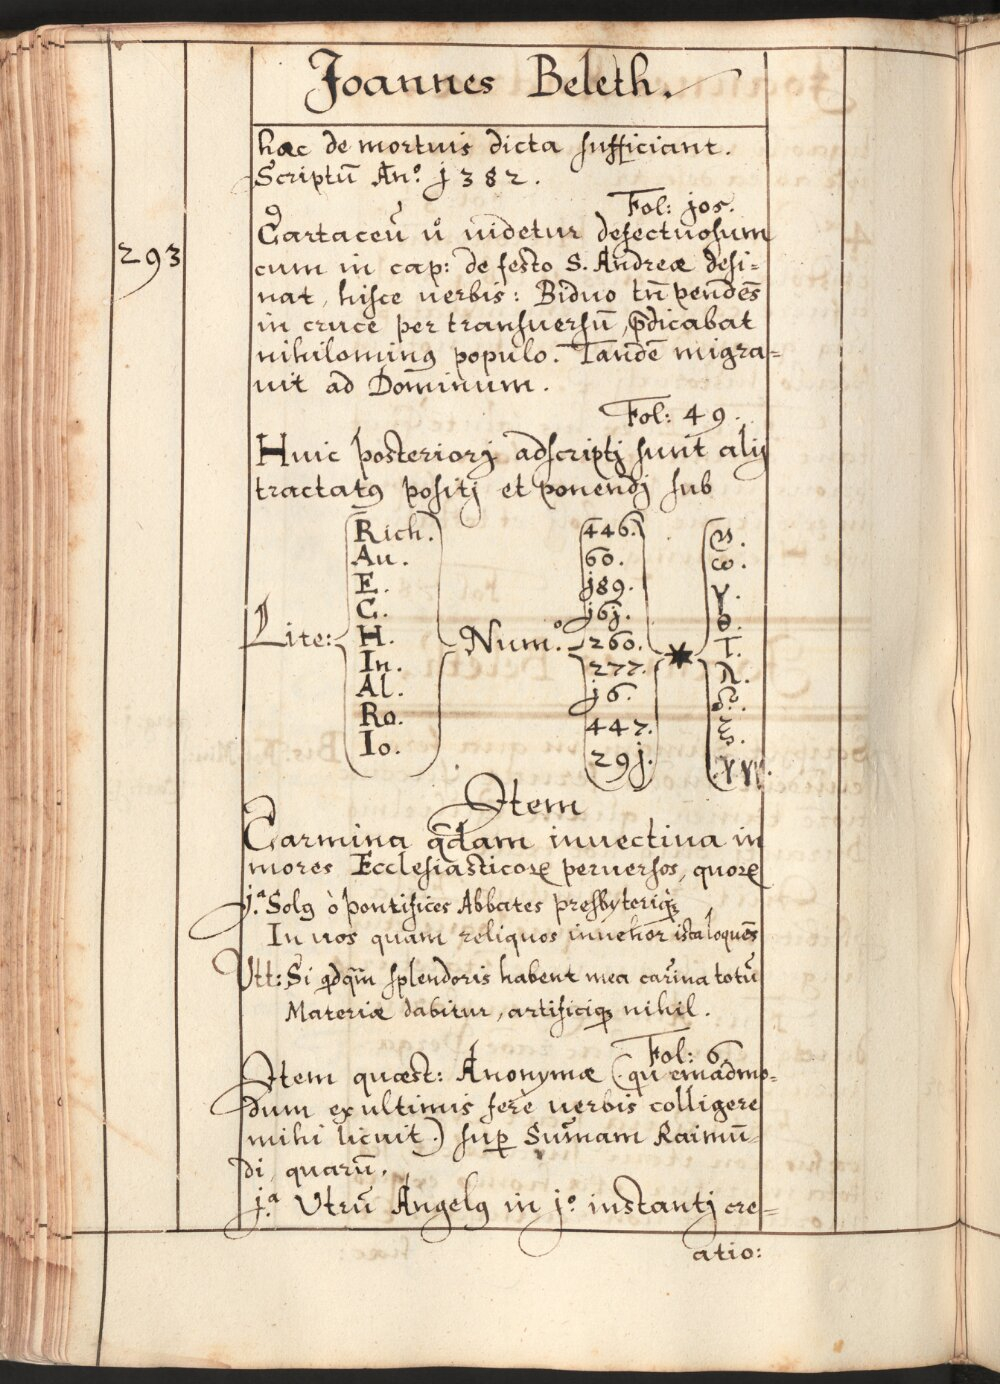 Joannes Beleth.
hæc de mortuis dicta sufficiant.
Scriptũ An.º j382.
Fol: jos.
293
Cartaceũ ů uidetur defectuosum
cum in cap: de festo S. Andreæ desi=
nat, hisce uerbis: Biduo tñ pendẽs
in cruce per transuersũ, p̃dicabat
nihilominꝰ populo. Tandẽ migra=
uit ad Dominum.
Fol: 49.
Huic posteriorj adscriptj sunt alij
tractatꝰ positj et ponendj sub
Lite:
Rich.
Au.
E.
C.
H.
In.
Al.
Ro.
Io.
Num.º
446.
60.
j89.
j6j.
260.
277.
j6.
447.
29j.
*
ω.
γ.
T.
ξ.
Item
Carmina q̃dam inuectiua in
mores Ecclesiasticoꝝ peruersos, quoꝝ
j.ª Solꝰ ò pontifices Abbates presbyteriqꝫ
In uos quam reliquos inuehor ista loquẽs
Vtt: Si qdq̃m splendoris habent mea carm̃ina totũ
Materiæ dabitur, artificiqꝫ nihil.
Fol: 6.
Item quæst: Anonymæ (quemadmo=
dum ex ultimis ferè uerbis colligere
mihi licuit.) suꝑ Sum̃am Raimũ=
di, quarũ.
j.ª Vtrũ Angelꝰ in j.º instantj cre=
atio: